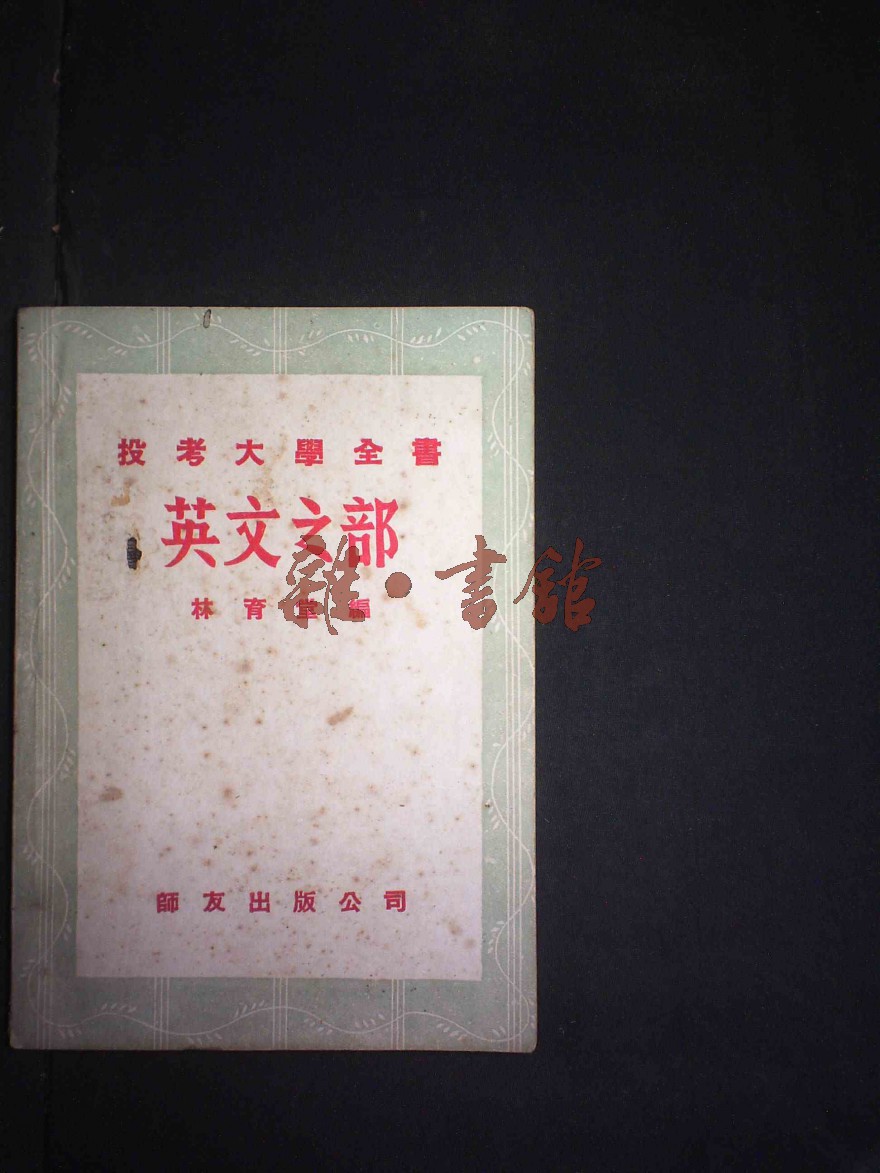 投考大學全書
英文之部
林育堂編
雜·書館
師友出版公司